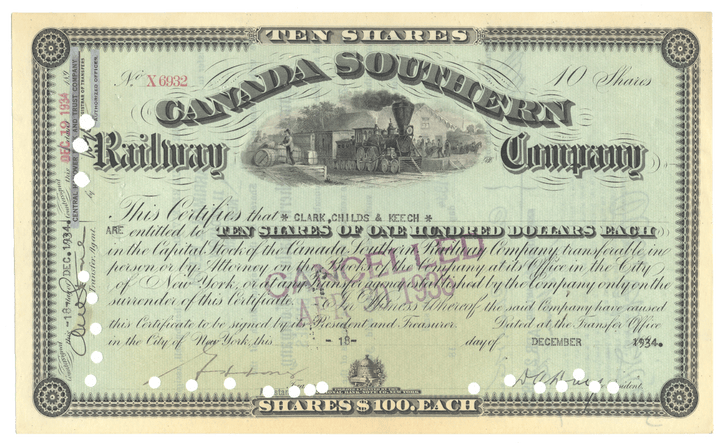 TEN SHARES
No. X6932
10 Shares
CANADA SOUTHERN
Railway Company
This Certifies that * CLARK, CHILDS & KEECH *
ARE entitled to TEN SHARES OF ONE HUNDRED DOLLARS EACH
in the Capital Stock of the Canada Southern Railway Company transferable in
person or by Attorney on the books of the Company at its Office in the City
of New York, or at any Transfer agency established by the Company only on the
surrender of this Certificate. In Witness Whereof the said Company have caused
this Certificate to be signed by its President and Treasurer. Dated at the Transfer Office
in the City of New York, this -18- day of DECEMBER 1934.
CANCELLED
President.
SHARES $100. EACH
DEC 19 1934
-18- day of DEC. 1934.
Transfer Agent.